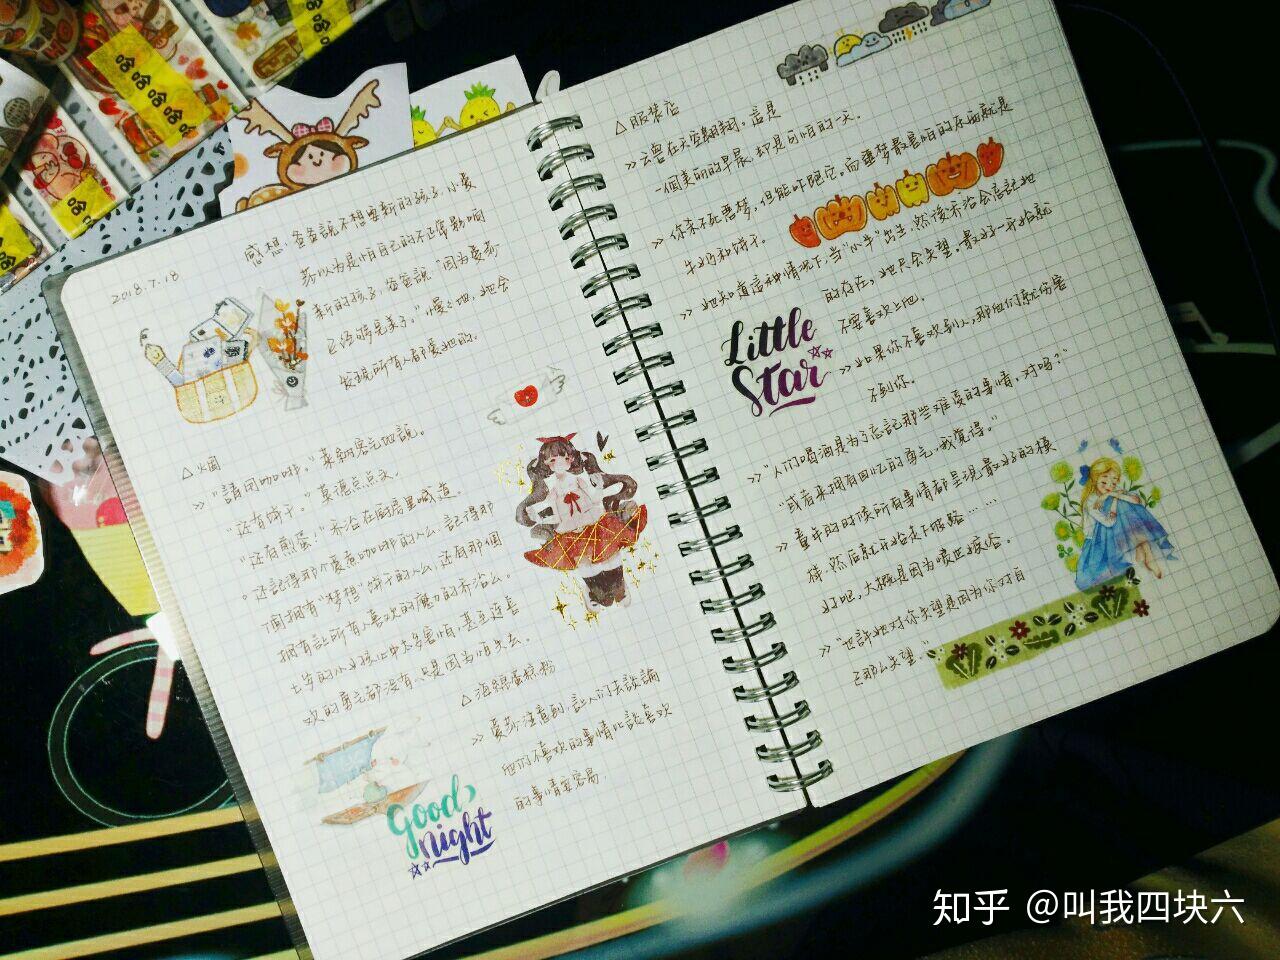 哈哈哈哈哈哈
哈哈哈
哈哈哈
2018.7.18
感想:爸爸說不想要新的孩子,小愛
莎以为是怕自己的不正常影响
新的孩子,爸爸說"因为愛莎
已经够完美了。"慢慢地,她会
发现所有人都愛她的。
"請用咖啡。"莱納客气地說。
"还有饼干。"莫德点点头。
"还有煎蛋!"乔治在厨房里喊道。
还記得那个愛煮咖啡的人么,記得那
个拥有"梦想"饼干的人么,还有那個
拥有让所有人喜欢的魔力的乔治么。
七岁的小小孩心中太多害怕,甚至连喜
欢的勇气都没有,只是因为怕失去。
△海綿蛋糕粉
>> 愛莎注意到,让人们去談論
他们不喜欢的事情比談喜欢
的事情要容易.
good
night
△服装店
>> 云兽在天空翱翔。這是
一個美丽的早晨,却是可怕的一天。
>> 你杀不死噩梦,但能吓跑它。而噩梦最害怕的东西就是
牛奶和饼干。
>> 她知道這种情况下,当"小牛"出生,然後乔治会忘記她
的存在,她只会失望。最好一开始就
不要喜欢上他.
Little
Star
>> 如果你不喜欢别人,那他们就伤害
不到你。
>> "人们喝酒是为了忘記那些难受的事情,对吗?"
"或者来拥有回忆的勇气,我觉得。"
>> 童年的时候所有事情都呈现最好的模
样,然后就开始走下坡路……
好吧,大概是因为喷班疲俗。
>> "也許她对你失望是因为你对自
己那么失望."
知乎 @叫我四块六